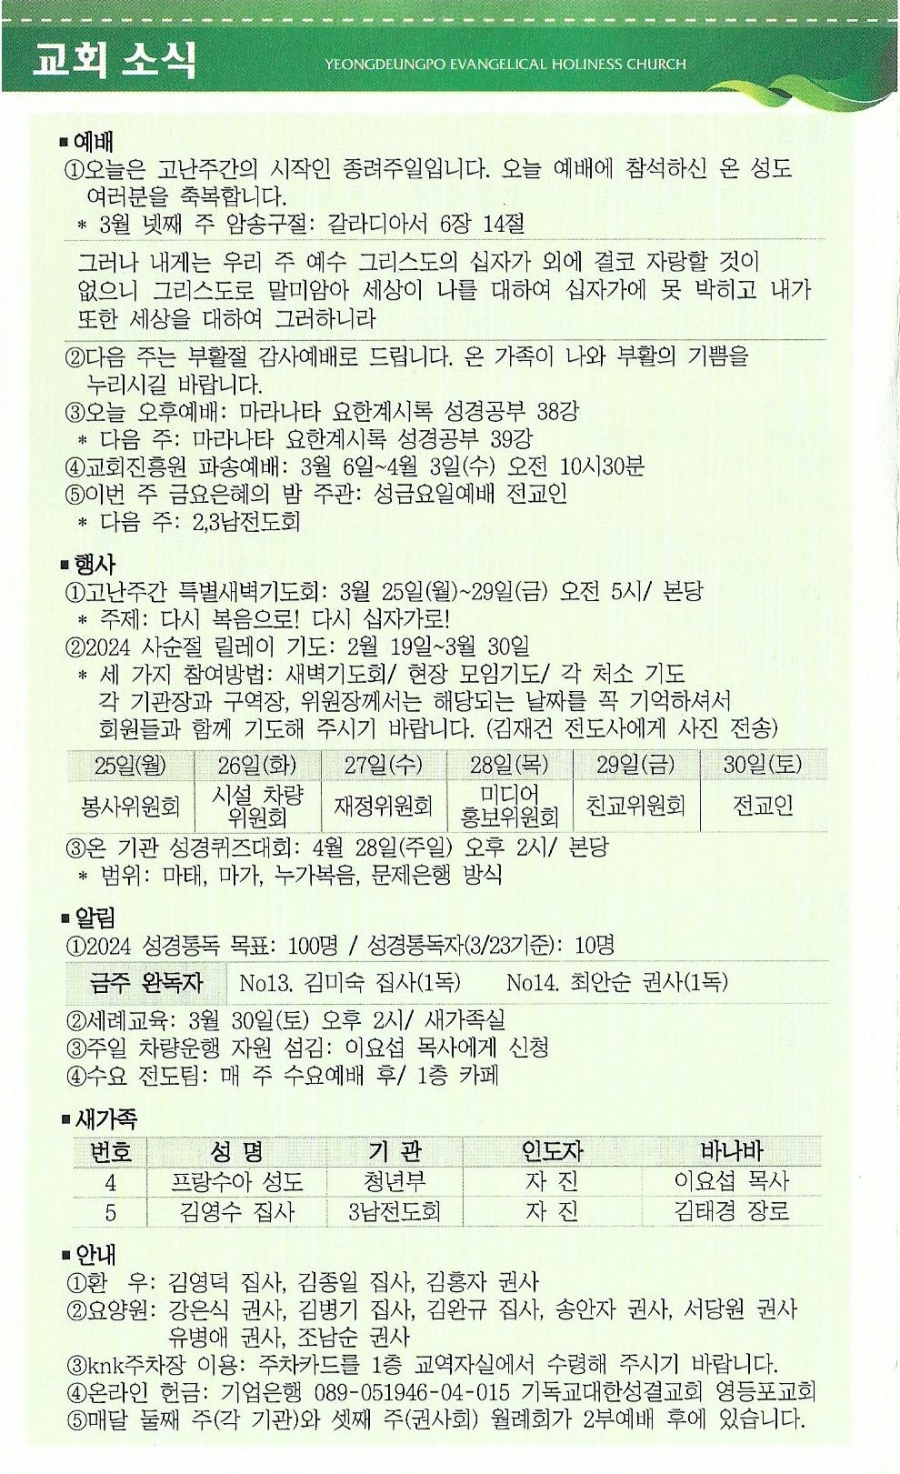 교회 소식
YEONGDEUNGPO EVANGELICAL HOLINESS CHURCH
■예배
①오늘은 고난주간의 시작인 종려주일입니다. 오늘 예배에 참석하신 온 성도
여러분을 축복합니다.
* 3월 넷째 주 암송구절: 갈라디아서 6장 14절
그러나 내게는 우리 주 예수 그리스도의 십자가 외에 결코 자랑할 것이
없으니 그리스도로 말미암아 세상이 나를 대하여 십자가에 못 박히고 내가
또한 세상을 대하여 그러하니라
②다음 주는 부활절 감사예배로 드립니다. 온 가족이 나와 부활의 기쁨을
누리시길 바랍니다.
③오늘 오후예배: 마라나타 요한계시록 성경공부 38강
* 다음 주: 마라나타 요한계시록 성경공부 39강
④교회진흥원 파송예배: 3월 6일~4월 3일(수) 오전 10시30분
⑤이번 주 금요은혜의 밤 주관: 성금요일예배 전교인
* 다음 주: 2,3남전도회
■행사
①고난주간 특별새벽기도회: 3월 25일(월)~29일(금) 오전 5시/ 본당
* 주제: 다시 복음으로! 다시 십자가로!
②2024 사순절 릴레이 기도: 2월 19일~3월 30일
* 세 가지 참여방법: 새벽기도회/ 현장 모임기도/ 각 처소 기도
각 기관장과 구역장, 위원장께서는 해당되는 날짜를 꼭 기억하셔서
회원들과 함께 기도해 주시기 바랍니다. (김재건 전도사에게 사진 전송)
25일(월) 26일(화) 27일(수) 28일(목) 29일(금) 30일(토)
봉사위원회 시설 차량 위원회 재정위원회 미디어 홍보위원회 친교위원회 전교인
③온 기관 성경퀴즈대회: 4월 28일(주일) 오후 2시/ 본당
* 범위: 마태, 마가, 누가복음, 문제은행 방식
■알림
①2024 성경통독 목표: 100명 / 성경통독자(3/23기준): 10명
금주 완독자 No13. 김미숙 집사(1독) No14. 최안순 권사(1독)
②세례교육: 3월 30일(토) 오후 2시/ 새가족실
③주일 차량운행 자원 섬김: 이요섭 목사에게 신청
④수요 전도팀: 매 주 수요예배 후/ 1층 카페
■새가족
번호 성 명 기 관 인도자 바나바
4 프랑수아 성도 청년부 자 진 이요섭 목사
5 김영수 집사 3남전도회 자 진 김태경 장로
■안내
①환 우: 김영덕 집사, 김종일 집사, 김홍자 권사
②요양원: 강은식 권사, 김병기 집사, 김완규 집사, 송안자 권사, 서당원 권사
유병애 권사, 조남순 권사
③knk주차장 이용: 주차카드를 1층 교역자실에서 수령해 주시기 바랍니다.
④온라인 헌금: 기업은행 089-051946-04-015 기독교대한성결교회 영등포교회
⑤매달 둘째 주(각 기관)와 셋째 주(권사회) 월례회가 2부예배 후에 있습니다.